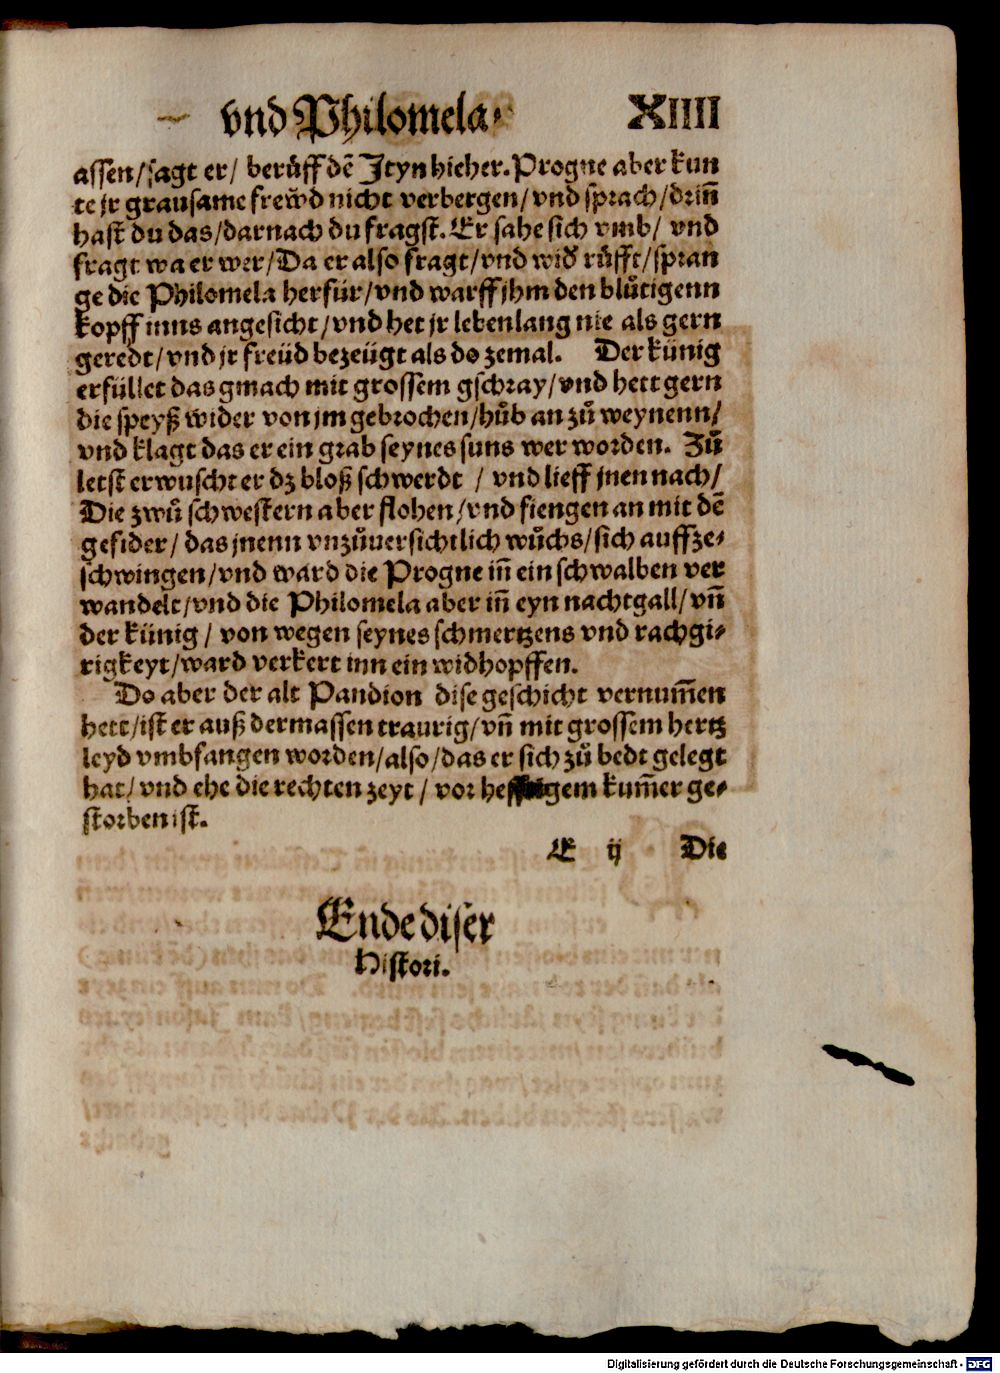 vnd Philomela. XIIII
assen/sagt er/ berůff dē Jtyn hieher. Progne aber kun
te jr grausame frewd nicht verbergen/ vnd sprach/drinn̄
hast du das/darnach du fragst. Er sahe sich vmb/ vnd
fragt wa er wer/Da er also fragt/vnd wid' růfft/spran
ge die Philomela herfür/vnd warff jhm den blůtigenn
kopff inns angesicht/vnd het jr lebenlang nie als gern
geredt/vnd jr freüd bezeügt als do zemal. Der künig
erfüllet das gmach mit grossem gschray/vnd hett gern
die speyß wider von jm gebrochen/hůb an zů weynenn/
vnd klagt das er ein grab seynes suns wer worden. Zů
letst erwuscht er dz bloß schwerdt / vnd lieff jnen nach/
Die zwů schwestern aber flohen/vnd fiengen an mit dē
gefider/ das jnenn vnzůuersichtlich wůchs/sich auffze⸗
schwingen/vnd ward die Progne iñ ein schwalben ver
wandelt/vnd die Philomela aber iñ eyn nachtgall/vñ
der künig / von wegen seynes schmertzens vnd rachgi⸗
rigkeyt/ward verkert inn ein widhopffen.
Do aber der alt Pandion dise geschicht vernum̄en
hett/ist er auß dermassen traurig/vñ mit grossem hertz
leyd vmbfangen worden/also/das er sich zů bedt gelegt
hat/ vnd ehe die rechten zeyt / vor hefftigem kum̄er ge⸗
storben ist.
E ij Die
Ende diser
Histori.
Digitalisierung gefördert durch die Deutsche Forschungsgemeinschaft - DFG